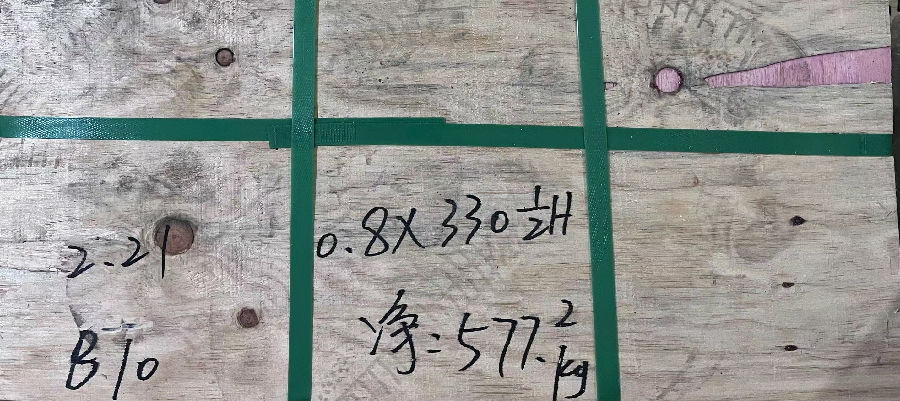 2.21
B.10
0.8X330 ½H
净:577.2kg